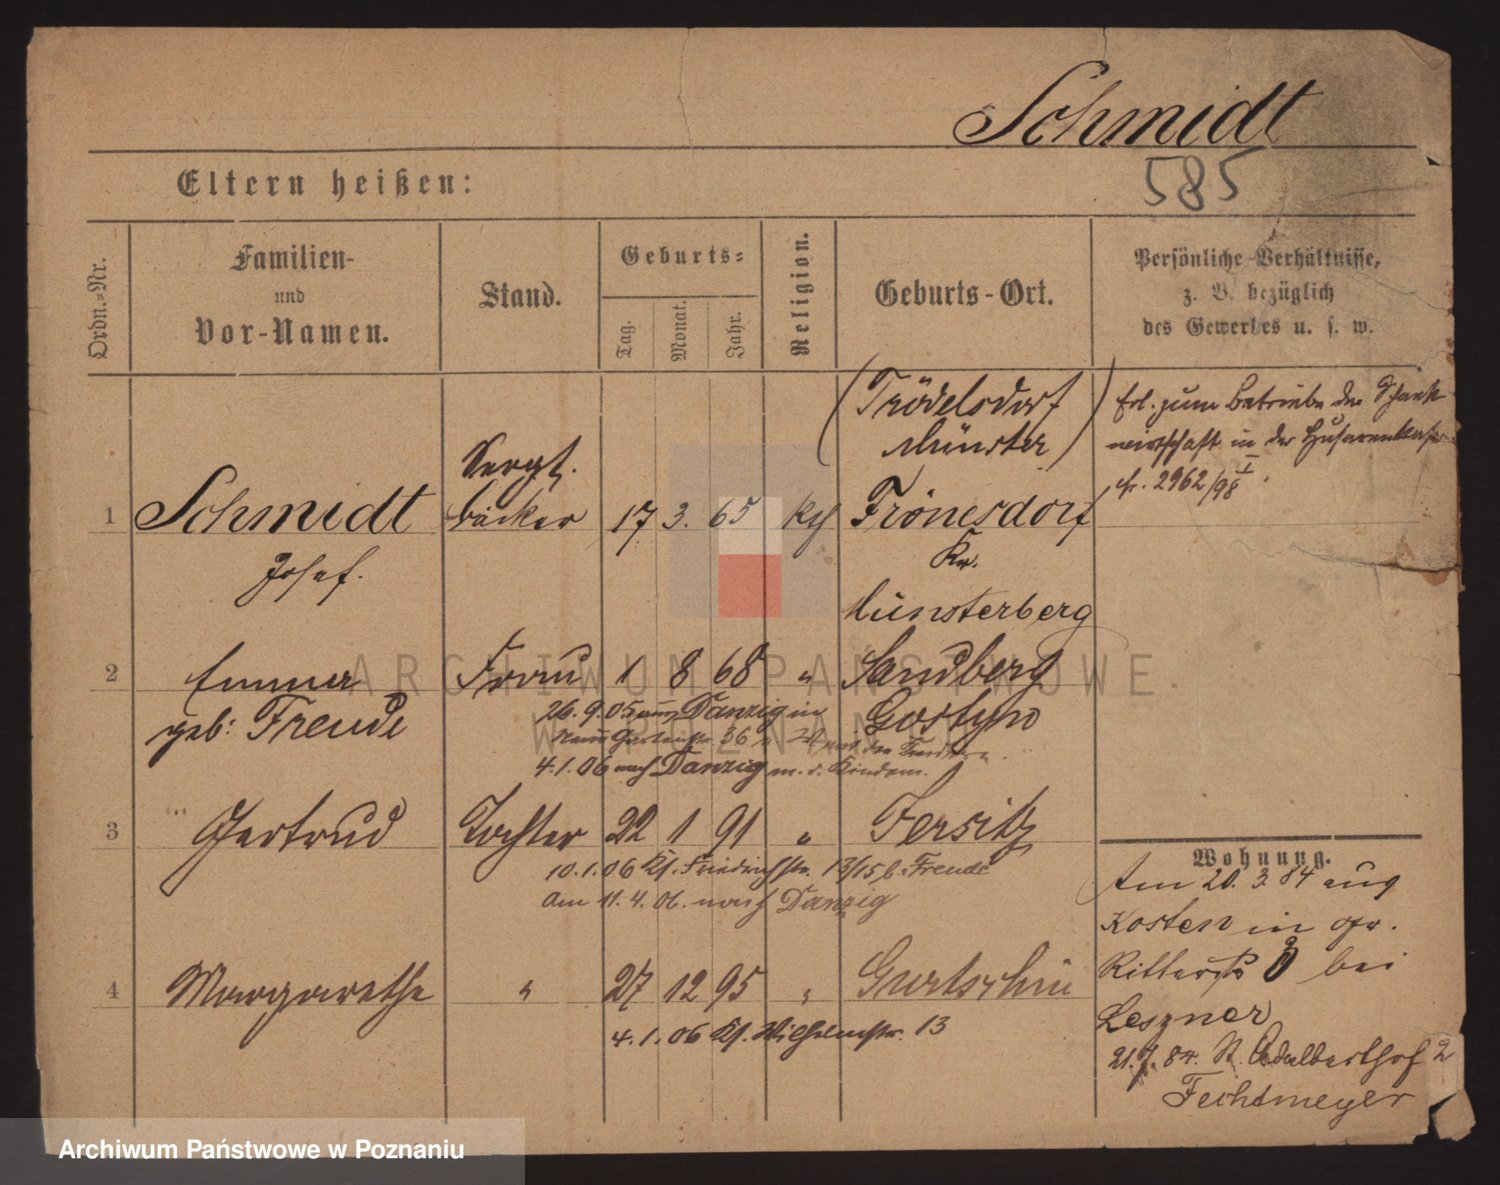 Schmidt
585
Eltern heißen:
Ordn.-Nr.
Familien-
und
Vor-Namen.
Stand.
Geburts-
Tag.
Monat.
Jahr.
Religion.
Geburts-Ort.
Persönliche Verhältnisse,
z. B. bezüglich
des Gewerbes u. s. w.
(Trödelsdorf
Münster)
Erl. zum Betriebe der Schank
wirthschaft in der Husarenkaser
2962/98 I
Sergt.
1 Schmidt Bäcker 17 3. 65 Frönesdorf
Josef. Kr.
Münsterberg
2 Emma Frau 1 8 68 " Sandberg
geb: Freude Gostyn
26. 9. 05 aus Danzig in
Gartenstr. 36
4. 1. 06 nach Danzig m. d. Kindern.
3 Gertrud Tochter 22 1 91 " Fersitz
10. 1. 06 Kl. Friedrichstr. 13/15 b. Freude
Am 11. 4. 06. nach Danzig
4 Margarethe " 27 12 95 " Gurtschin
4. 1. 06 Kl. Wilhelmstr. 13
Wohnung.
Am 20. 3. 84 aus
Kosten in gr.
Ritterstr 3 bei
Leszner
21. 7. 84. St. Adalberthof 2
Fechtmeyer
ARCHIWUM PAŃSTWOWE
W POZNANIU
Archiwum Państwowe w Poznaniu